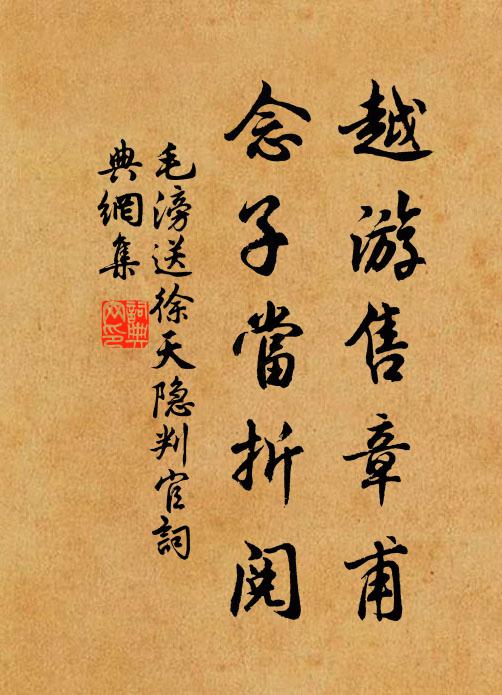 越游售章甫
念子當折閱
毛滂送徐天隐判官詞
典網集
詞典網印